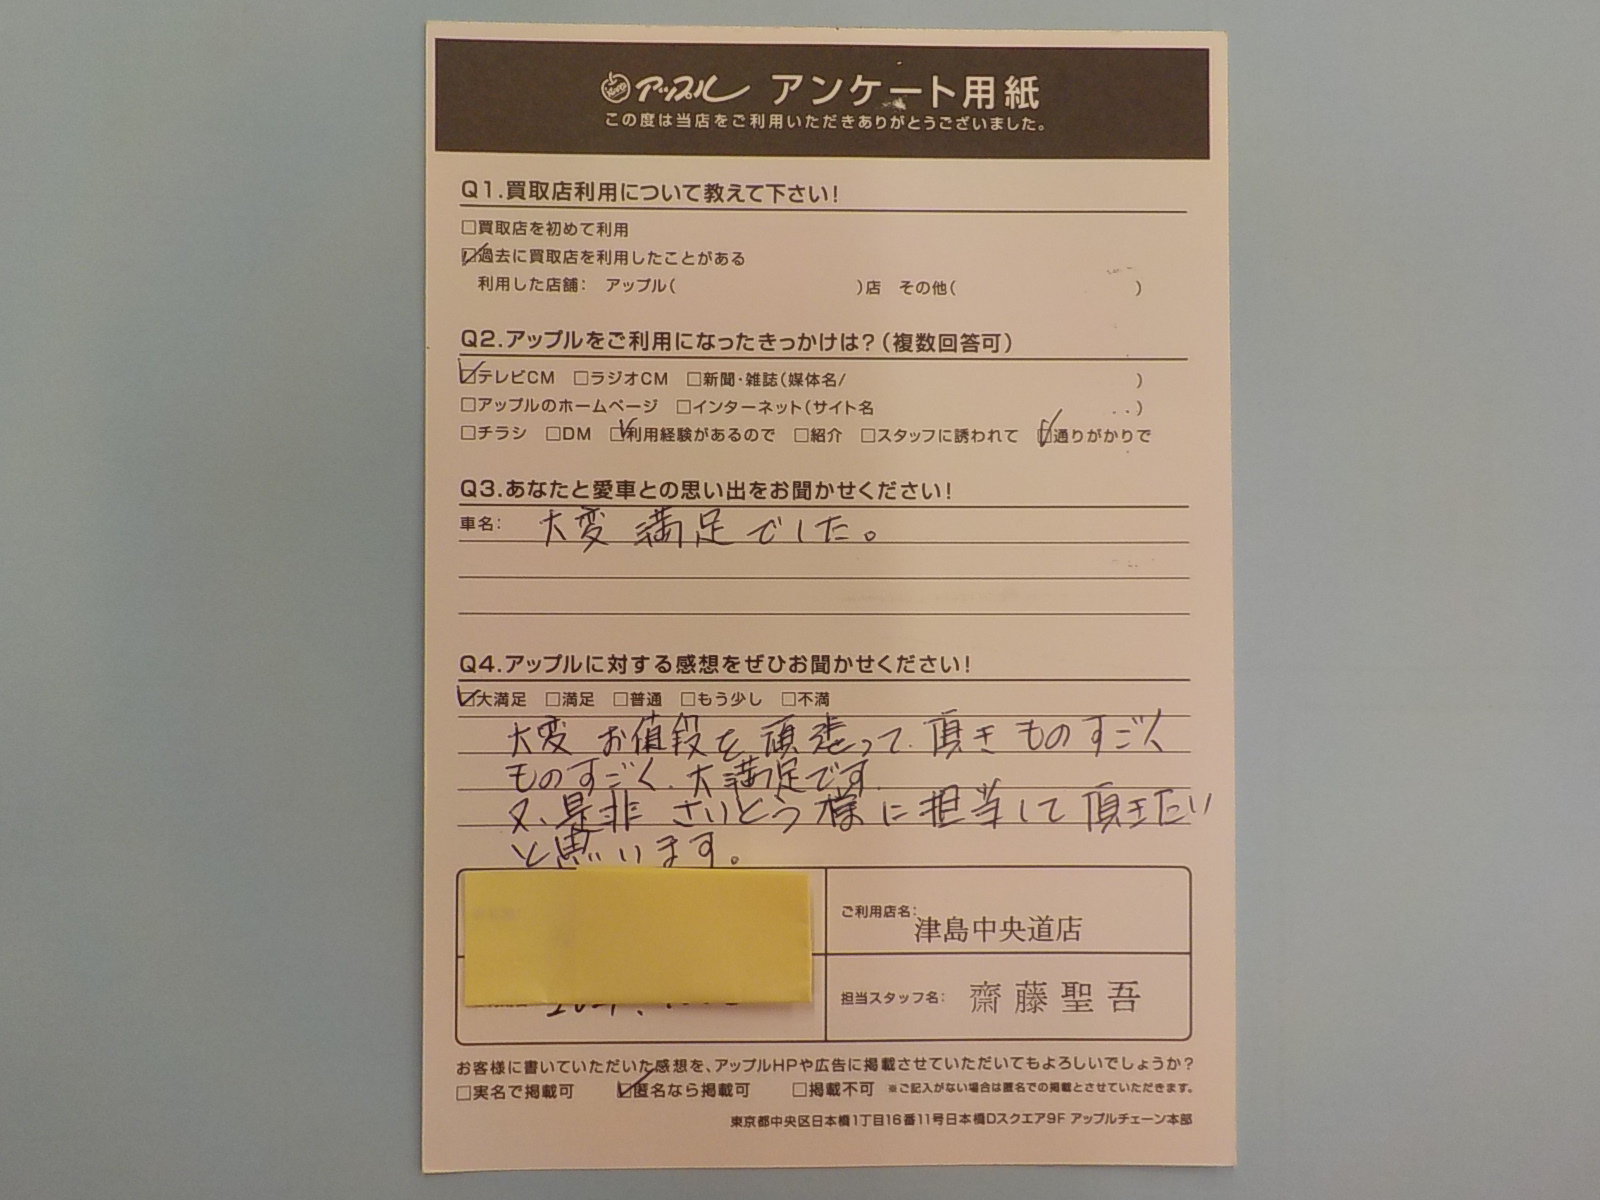 アップル アンケート用紙
この度は当店をご利用いただきありがとうございました。
Q1.買取店利用について教えて下さい!
□買取店を初めて利用
☑過去に買取店を利用したことがある
利用した店舗: アップル( )店 その他( )
Q2.アップルをご利用になったきっかけは?(複数回答可)
☑テレビCM □ラジオCM □新聞・雑誌(媒体名/ )
□アップルのホームページ □インターネット(サイト名 )
□チラシ □DM ☑利用経験があるので □紹介 □スタッフに誘われて ☑通りがかりで
Q3.あなたと愛車との思い出をお聞かせください!
車名: 大変 満足でした。
Q4.アップルに対する感想をぜひお聞かせください!
☑大満足 □満足 □普通 □もう少し □不満
大変 お値段を 頑張って、頂き ものすごく
ものすごく、大満足です
又、是非 さいとう様に担当して頂きたい
と思います。
ご利用店名: 津島中央道店
担当スタッフ名: 齋藤聖吾
お客様に書いていただいた感想を、アップルHPや広告に掲載させていただいてもよろしいでしょうか?
□実名で掲載可 ☑匿名なら掲載可 □掲載不可 ※ご記入がない場合は匿名での掲載とさせていただきます。
東京都中央区日本橋1丁目16番11号日本橋Dスクエア9F アップルチェーン本部